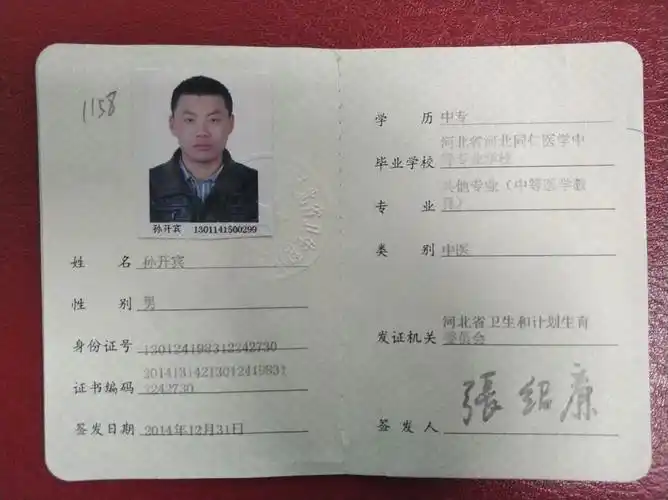 1158
孙开宾 1301141500299
姓 名 孙开宾
性 别 男
身份证号 130124198312242730
证书编码 20141314213012419831
2242730
签发日期 2014年12月31日
学 历 中专
河北省河北同仁医学中
毕业学校 等专业学校
其他专业（中等医学教
专 业 育）
类 别 中医
河北省卫生和计划生育
发证机关 委员会
签 发 人 張紹廉